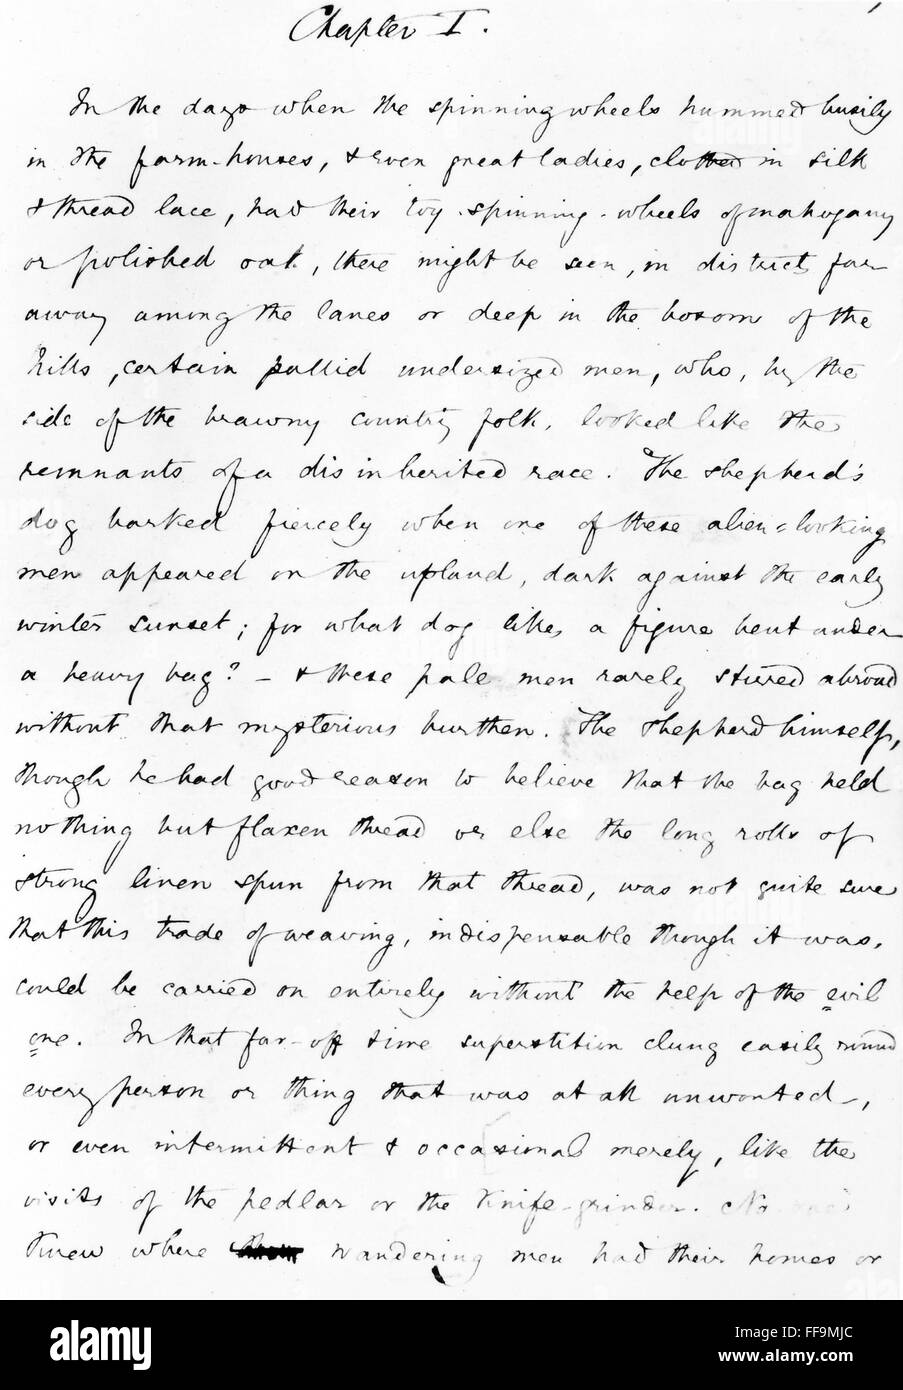 Chapter I.
In the days when the spinning wheels hummed busily
in the farm-houses, & even great ladies, clothed in silk
& thread lace, had their toy-spinning-wheels of mahogany
or polished oak, there might be seen, in districts far
away among the lanes or deep in the bosom of the
hills, certain pallid undersized men, who, by the
side of the brawny country folk, looked like the
remnants of a disinherited race. The shepherd's
dog barked fiercely when one of these alien-looking
men appeared on the upland, dark against the early
winter sunset; for what dog likes a figure bent under
a heavy bag? - & these pale men rarely stirred abroad
without that mysterious burthen. The shepherd himself,
though he had good reason to believe that the bag held
nothing but flaxen thread or else the long rolls of
strong linen spun from that thread, was not quite sure
that this trade of weaving, indispensable though it was,
could be carried on entirely without the help of the evil
one. In that far-off time superstition clung easily round
every person or thing that was at all unwonted,
or even intermittent & occasional merely, like the
visits of the pedlar or the knife-grinder. No one
knew where wandering men had their homes or
alamy
Image ID: FF9MJC
www.alamy.com